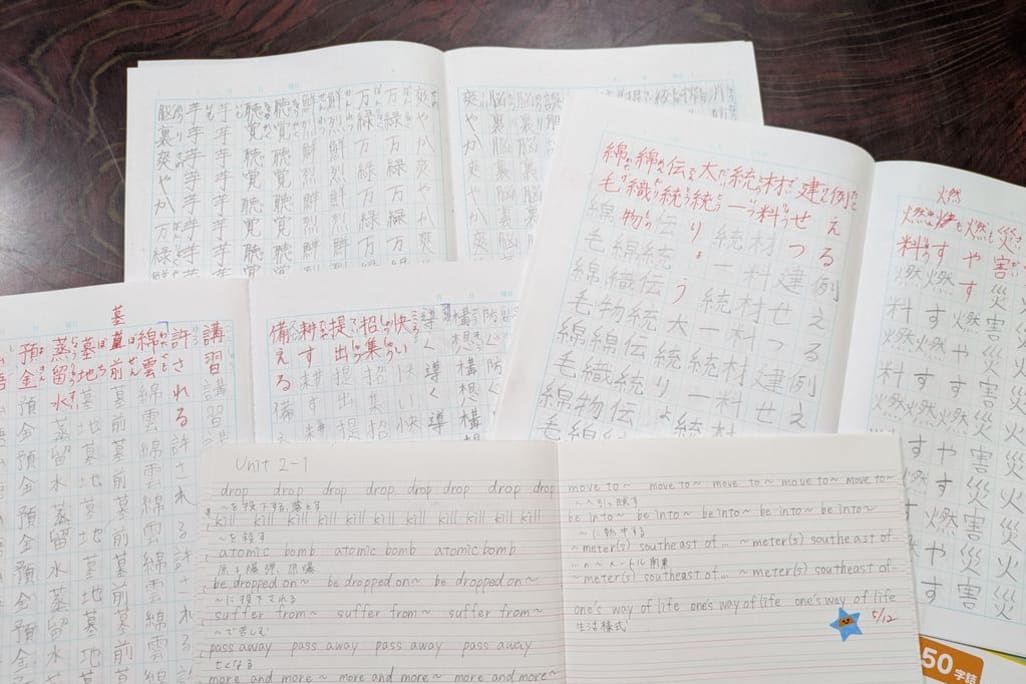 爽やか
万緑万緑万緑
万緑万緑万緑
鮮烈鮮烈鮮烈
鮮烈鮮烈鮮烈
聴覚聴覚聴覚
聴覚聴覚聴覚
芋芋芋芋芋芋
芋芋芋芋芋芋
脳裏爽やか万緑
脳裏脳裏
脳裏脳裏
爽やか
例える例える例え
建せつ建せつ建せ
材料材料材料
統一統一統一
大統りょう大統りょ
伝統伝統伝統伝
綿織物綿織物綿織物
綿毛綿毛綿毛綿毛綿
燃
災害災害災害災害
燃やす燃やす燃やす
燃す燃す燃す
燃料燃料燃料
講習講習
許される許される許され
綿雲綿雲綿雲綿雲
墓
墓前墓前墓前墓前
墓地墓地墓地墓地
蒸留水蒸留水蒸留水
預金預金預金預金
防ぐ防ぐ
構想構想構
導く導く導
快い快い快
招集招集招
提出提出提
耕す耕す耕
備える備え
Unit 2-1
drop drop drop drop drop drop drop
〜を投下する、落とす
kill kill kill kill kill kill kill kill kill kill
〜を殺す
atomic bomb atomic bomb atomic bomb
原子爆弾、原爆
be dropped on〜 be dropped on〜 be dropped on〜
〜に投下される
suffer from〜 suffer from〜 suffer from〜
〜で苦しむ
pass away pass away pass away
亡くなる
more and more〜 more and more〜 more and more〜
move to〜 move to〜 move to〜 move to〜 move to〜
〜へ引っ越す
be into〜 be into〜 be into〜 be into〜 be into〜
〜に熱中する
〜meter(s) southeast of… 〜meter(s) southeast of…
〜meter(s) southeast of… 〜meter(s) southeast of…
one's way of life one's way of life one's way of life
生活様式
5/12
50字詰